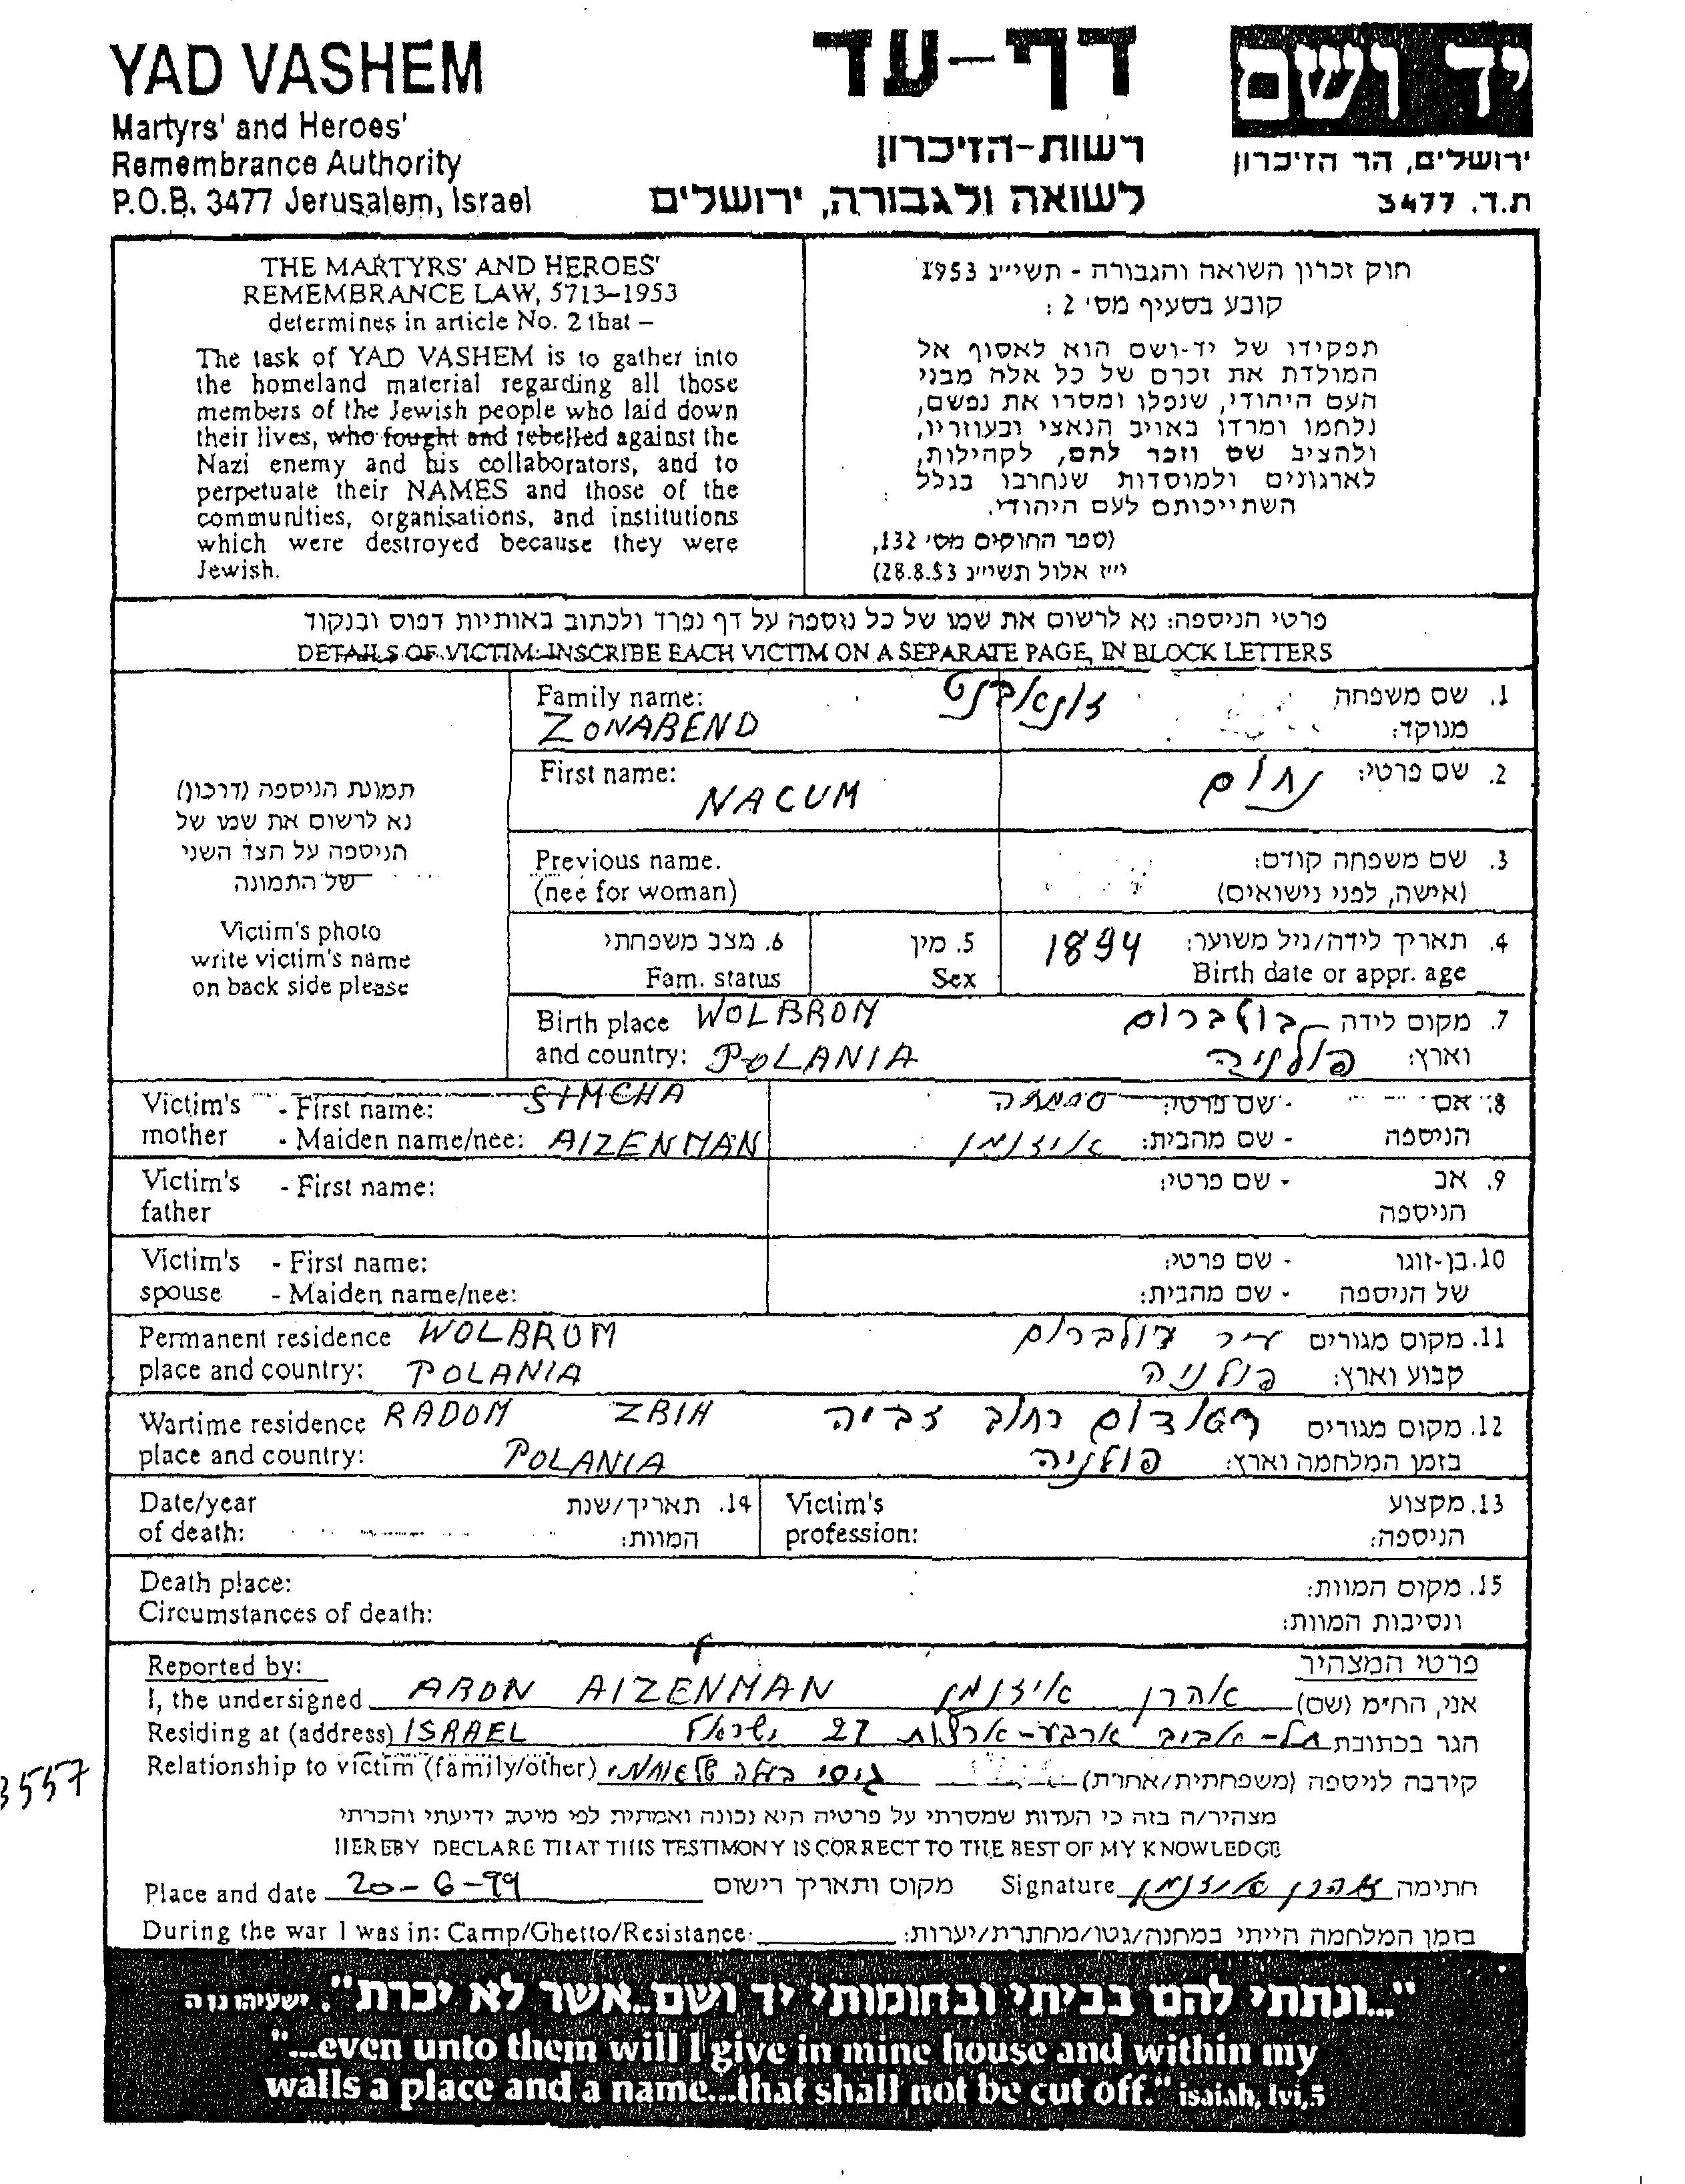 YAD VASHEM
Martyrs' and Heroes'
Remembrance Authority
P.O.B. 3477 Jerusalem, Israel
דף-עד
רשות-הזיכרון
לשואה ולגבורה, ירושלים
יד ושם
ירושלים, הר הזיכרון
ת.ד. 3477
THE MARTYRS' AND HEROES'
REMEMBRANCE LAW, 5713–1953
determines in article No. 2 that –
The task of YAD VASHEM is to gather into
the homeland material regarding all those
members of the Jewish people who laid down
their lives, who fought and rebelled against the
Nazi enemy and his collaborators, and to
perpetuate their NAMES and those of the
communities, organisations, and institutions
which were destroyed because they were
Jewish.
חוק זכרון השואה והגבורה - תשי״ג 1953
קובע בסעיף מס' 2 :
תפקידו של יד-ושם הוא לאסוף אל
המולדת את זכרם של כל אלה מבני
העם היהודי, שנפלו ומסרו את נפשם,
נלחמו ומרדו באויב הנאצי ובעוזריו,
ולהציב שם וזכר להם, לקהילות,
לארגונים ולמוסדות שנחרבו בגלל
השתייכותם לעם היהודי.
(ספר החוקים מס' 132,
י״ז אלול תשי״ג 28.8.53)
פרטי הניספה: נא לרשום את שמו של כל נוספה על דף נפרד ולכתוב באותיות דפוס ובנקוד
DETAILS OF VICTIM: INSCRIBE EACH VICTIM ON A SEPARATE PAGE, IN BLOCK LETTERS
תמונת הניספה (דרכון)
נא לרשום את שמו של
הניספה על הצד השני
של התמונה
Victim's photo
write victim's name
on back side please
Family name: זונאבנט 1. שם משפחה
ZONABEND מנוקד:
First name: נחום 2. שם פרטי:
NACUM
Previous name. 3. שם משפחה קודם:
(nee for woman) (אישה, לפני נישואים)
6. מצב משפחתי 5. מין 1894 4. תאריך לידה/גיל משוער:
Fam. status Sex Birth date or appr. age
Birth place WOLBROM 7. מקום לידה וולברום
and country: POLANIA וארץ: פולניה
Victim's - First name: SIMCHA 8. אם - שם פרטי:
mother - Maiden name/nee: AIZENMAN הניספה - שם מהבית: איזנמן
Victim's - First name: 9. אב - שם פרטי:
father הניספה
Victim's - First name: 10. בן-זוגו - שם פרטי:
spouse - Maiden name/nee: של הניספה - שם מהבית:
Permanent residence WOLBROM 11. מקום מגורים עיר וולברום
place and country: POLANIA קבוע וארץ: פולניה
Wartime residence RADOM ZBIH 12. מקום מגורים ראדום רחוב זביה
place and country: POLANIA בזמן המלחמה וארץ: פולניה
Date/year 14. תאריך/שנת Victim's 13. מקצוע
of death: המוות: profession: הניספה:
Death place: 15. מקום המוות:
Circumstances of death: ונסיבות המוות:
Reported by: פרטי המצהיר
I, the undersigned ARON AIZENMAN אני, החי״מ (שם) אהרן איזנמן
Residing at (address) ISRAEL הגר בכתובת תל-אביב ארבע-ארצות 27 ישראל
Relationship to victim (family/other) קירבה לניספה (משפחתית/אחרת) גיסי
3557
מצהיר/ה בזה כי העדות שמסרתי על פרטיה היא נכונה ואמתית לפי מיטב ידיעתי והכרתי
HEREBY DECLARE THAT THIS TESTIMONY IS CORRECT TO THE BEST OF MY KNOWLEDGE
Place and date 20-6-99 מקום ותאריך רישום Signature אהרן איזנמן חתימה
During the war I was in: Camp/Ghetto/Resistance: בזמן המלחמה הייתי במחנה/גטו/מחתרת/יערות:
"...ונתתי להם בביתי ובחומותי יד ושם...אשר לא יכרת". ישעיהו נו ה
"...even unto them will I give in mine house and within my
walls a place and a name...that shall not be cut off." isaiah, lvi,5